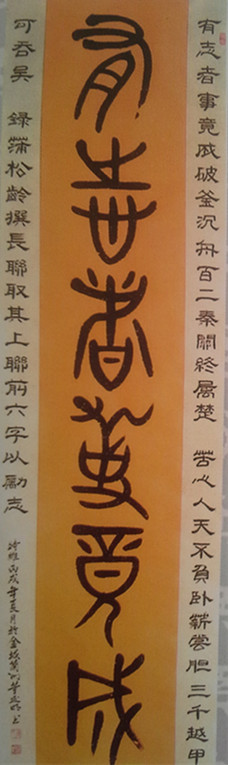 有志者事竟成
有志者事竟成破釜沉舟百二秦關終屬楚 苦心人天不負卧薪嘗胆三千越甲
可吞吴 錄蒲松齡撰長聯取其上聯前六字以勵志
時維丙戌年夏月於金城